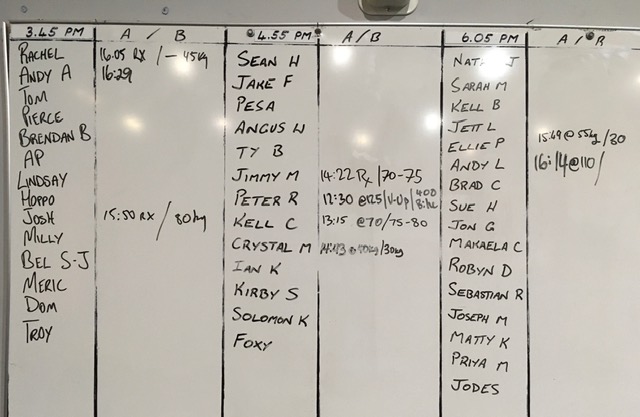 3.45 PM A / B
RACHEL 16.05 RX / - 45kg
ANDY A 16:29
TOM
PIERCE
BRENDAN B
AP
LINDSAY
HOPPO
JOSH 15:50 RX / 80kg
MILLY
BEL S-J
MERIC
DOM
TROY
4.55 PM A / B
SEAN H
JAKE F
PESA
ANGUS W
TY B
JIMMY M 14:22 RX / 70-75
PETER R 12:30 @125 / V-Up / 400
KELL C 13:15 @70 / 75-80
CRYSTAL M /30kg
IAN K
KIRBY S
SOLOMON K
FOXY
6.05 PM A / B
J
SARAH M
KELL B
JETT L
ELLIE P 15:49 @ 55kg / 80
ANDY L 16:14 @110 /
BRAD C
SUE H
JON G
MAKAELA C
ROBYN D
SEBASTIAN R
JOSEPH M
MATTY K
PRIYA M
JODES